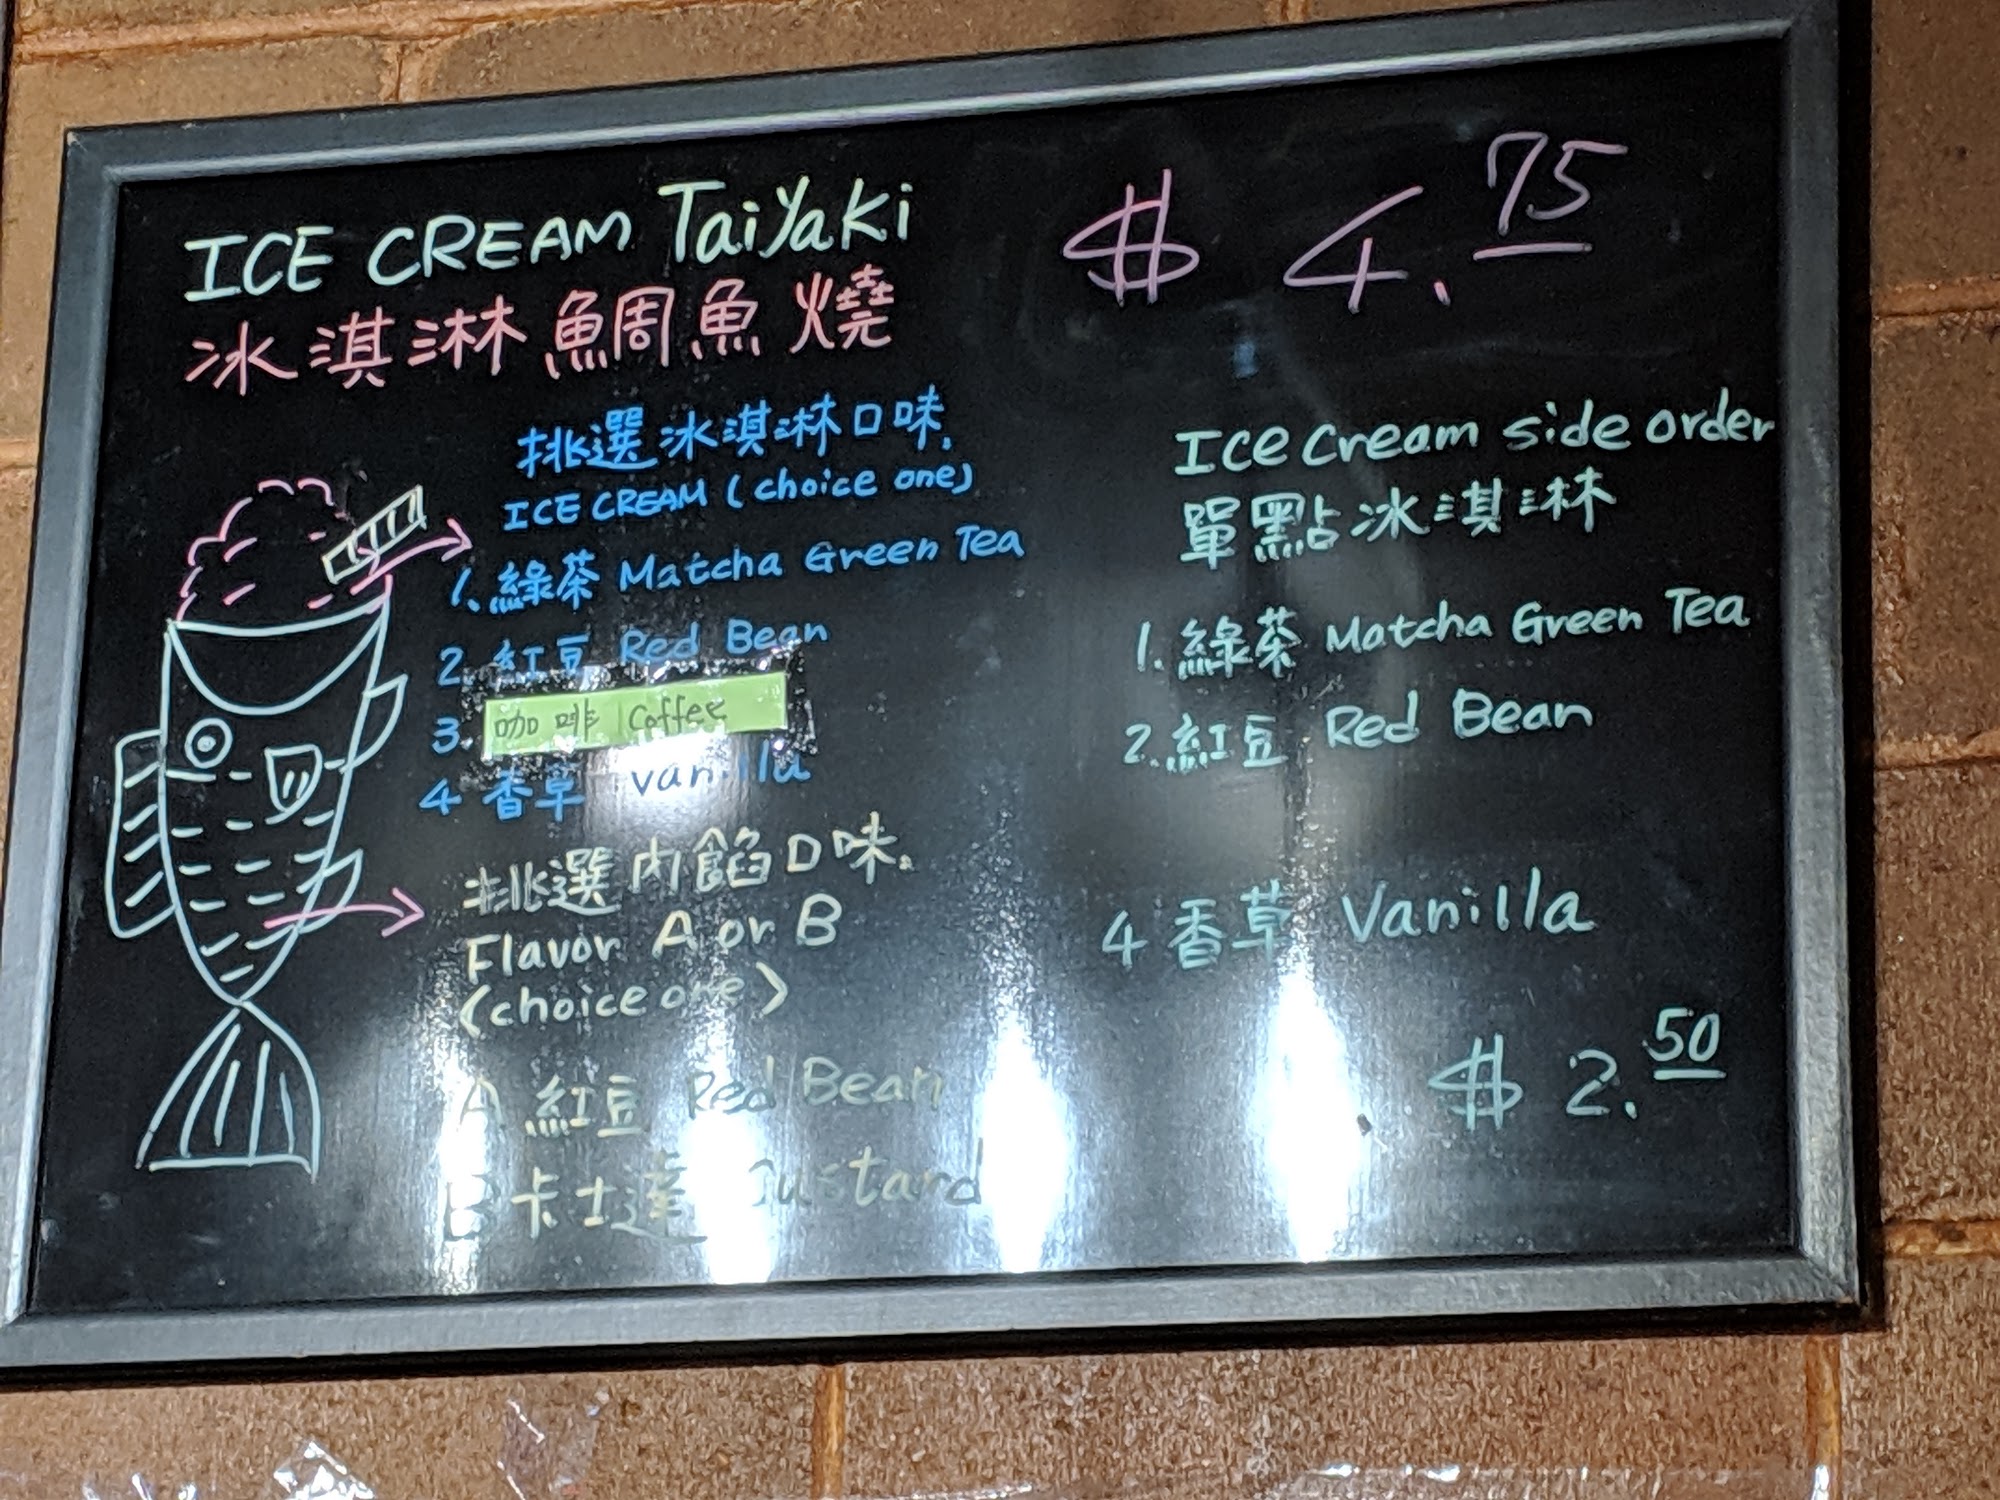 ICE CREAM Taiyaki
冰淇淋鯛魚燒
$ 4.75
挑選冰淇淋口味.
ICE CREAM (choice one)
1. 綠茶 Matcha Green Tea
2. 紅豆 Red Bean
3. 咖啡 Coffee
4 香草 Vanilla
挑選內餡口味.
Flavor A or B
(choice one)
A 紅豆 Red Bean
B 卡士達 Custard
Ice Cream side order
單點冰淇淋
1. 綠茶 Matcha Green Tea
2. 紅豆 Red Bean
4 香草 Vanilla
$ 2.50